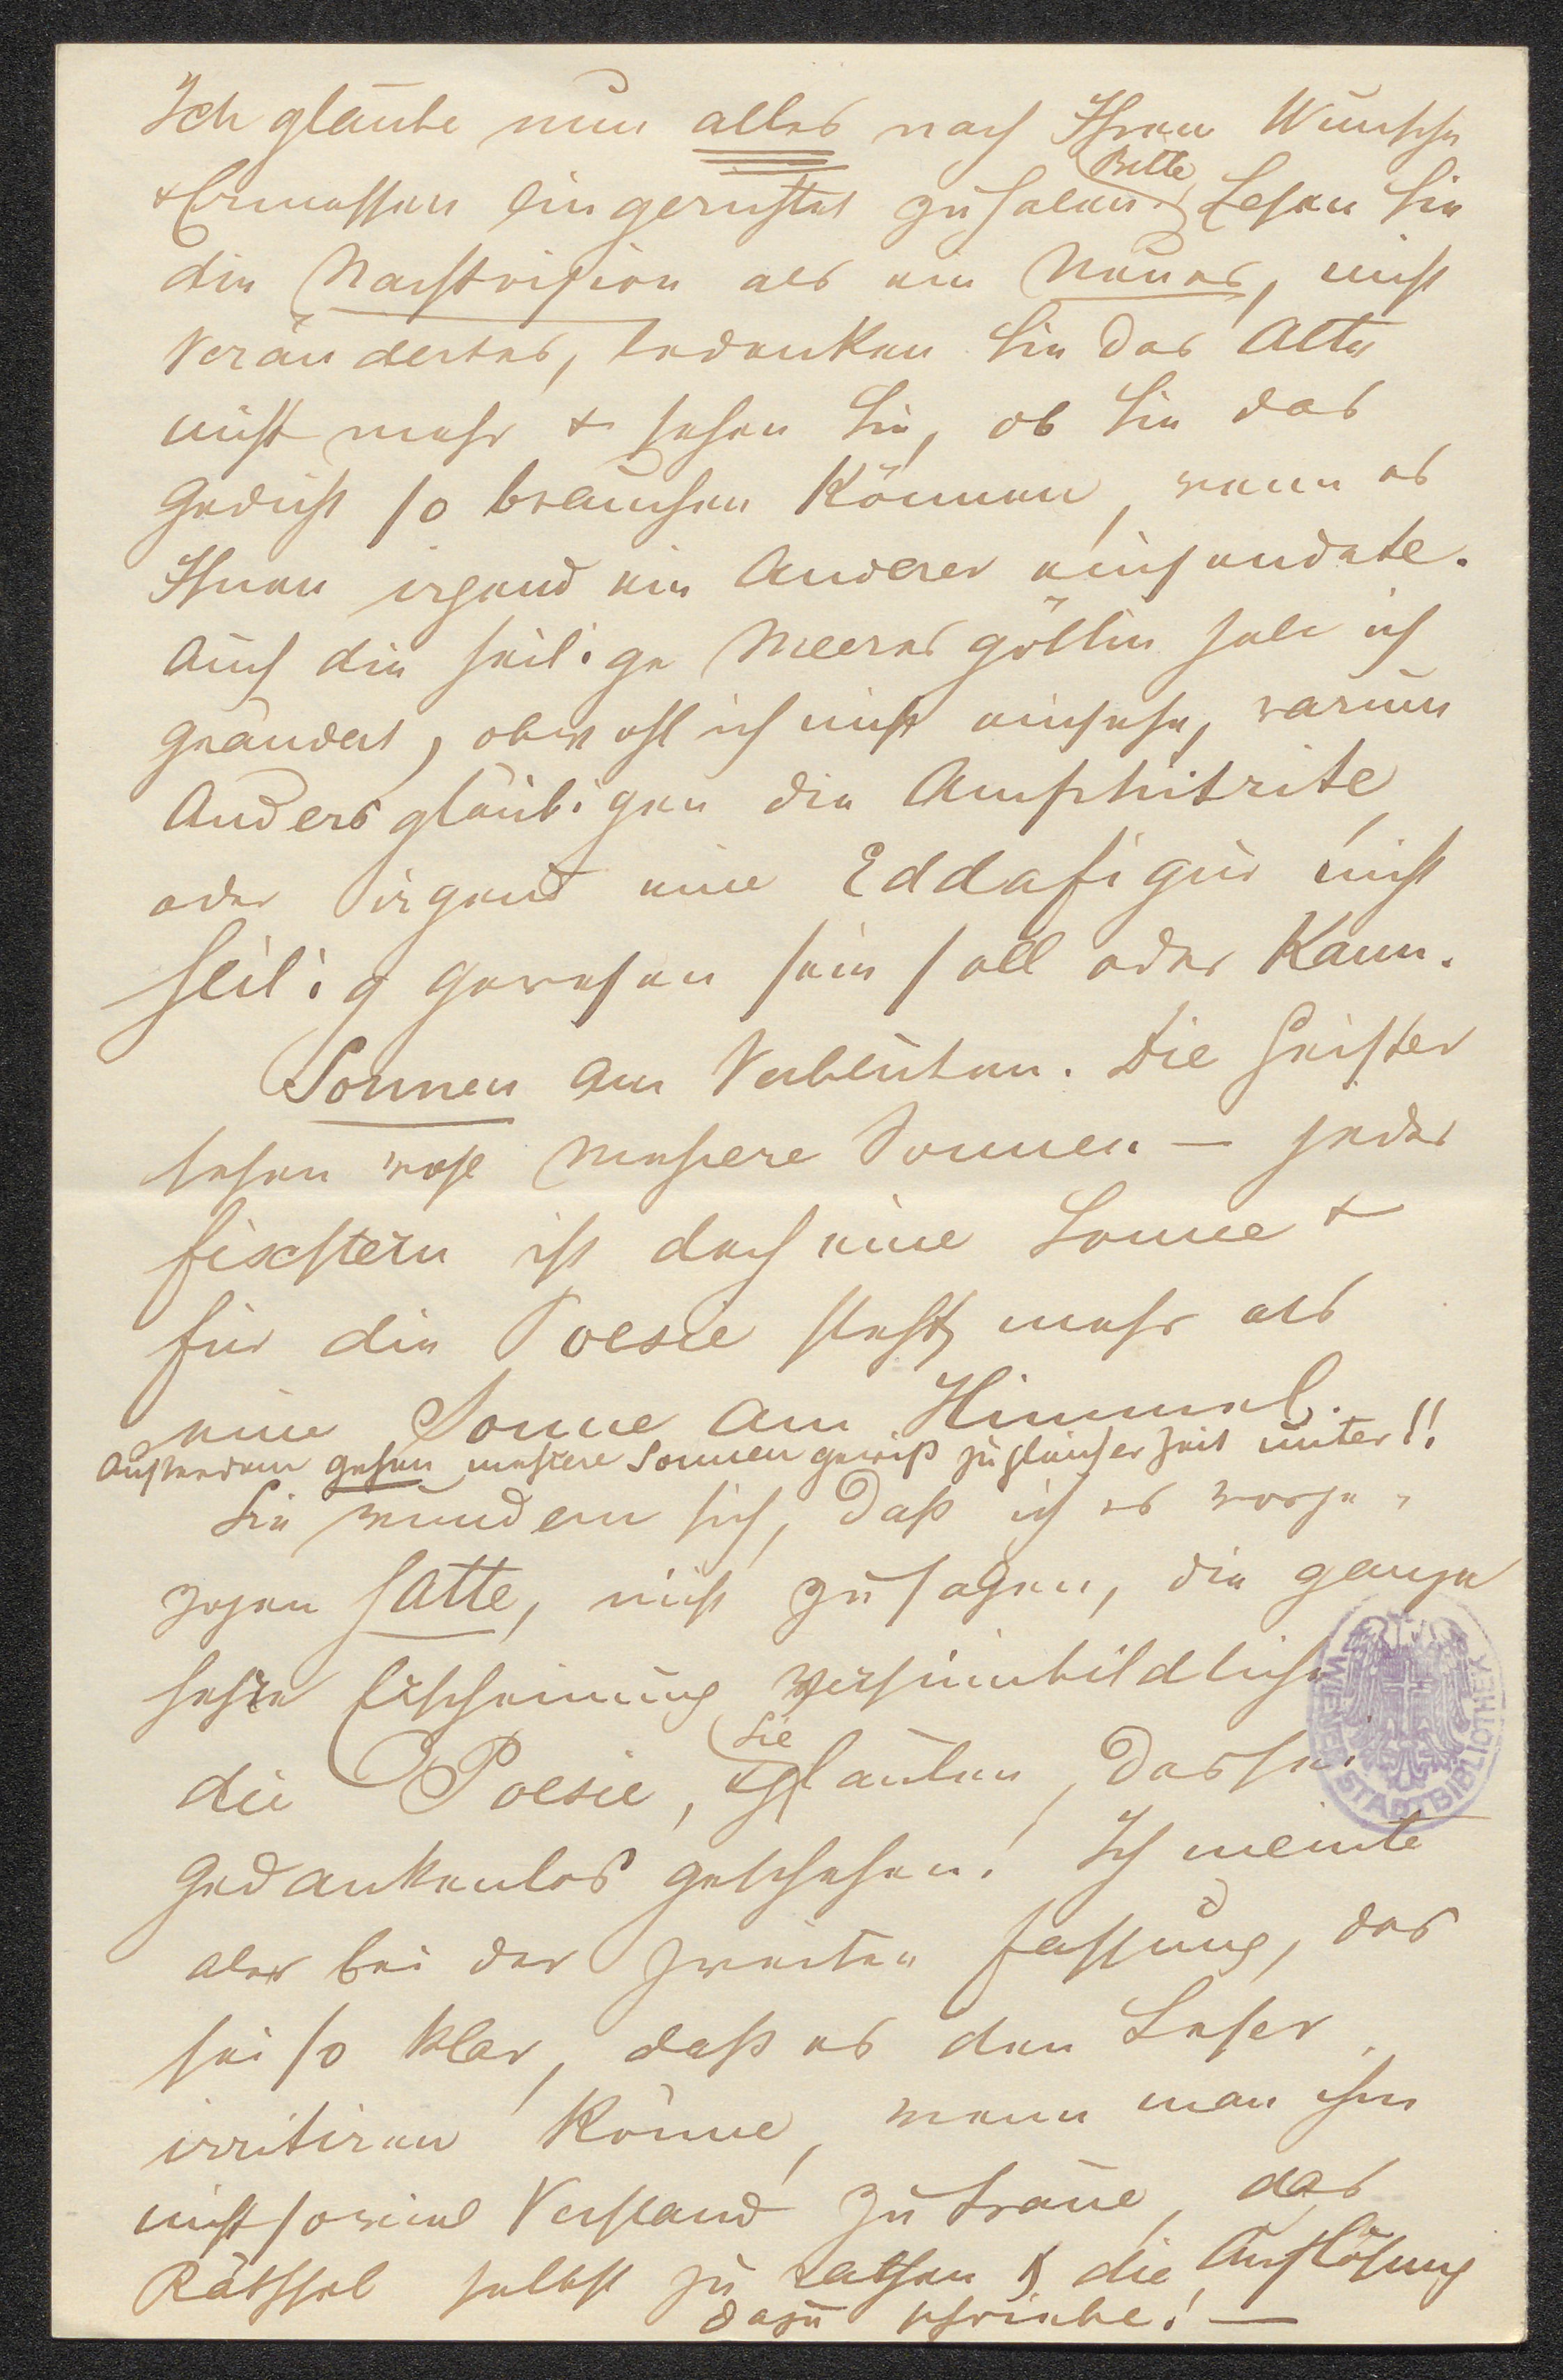 Ich glaube nun alles nach Ihrem Wunsche
+ Ermessen eingerichtet zu haben. Bitte Lesen Sie
die Nachtvision als ein Neues, nicht
Verändertes, bedenken Sie das Alte
nicht mehr + sehen Sie, ob Sie das
Gedicht so brauchen können, wenn es
Ihnen irgend ein Anderer einsendete.
Auch die heilige Meeresgöttin habe ich
geändert, obwohl ich nicht einsehe, warum
Andersgläubigen die Amphitrite
oder irgend eine Eddafigur nicht
heilig gewesen sein soll oder kann.
Sonnen am Verbluten. Die Geister
sehen wohl mehrere Sonnen — jeder
Fixstern ist doch eine Sonne +
für die Poesie steht mehr als
eine Sonne am Himmel.
Ausserdem gehen mehrere Sonnen gewiß zu gleicher Zeit unter!!
Sie wundern sich, daß ich es vorge-
zogen hatte, nicht zu sagen, die ganze
hehre Erscheinung versinnbildliche
die Poesie, + Sie glauben, das sei
gedankenlos geschehen! Ich meinte
aber bei der zweiten Fassung, das
sei so klar, daß es den Leser
irritiren könne, wenn man ihm
nicht soviel Verstand zutraue, das
Räthsel selbst zu rathen & die Auflösung
dazu schriebe! —
VEREIN WIENER STADTBIBLIOTHEK